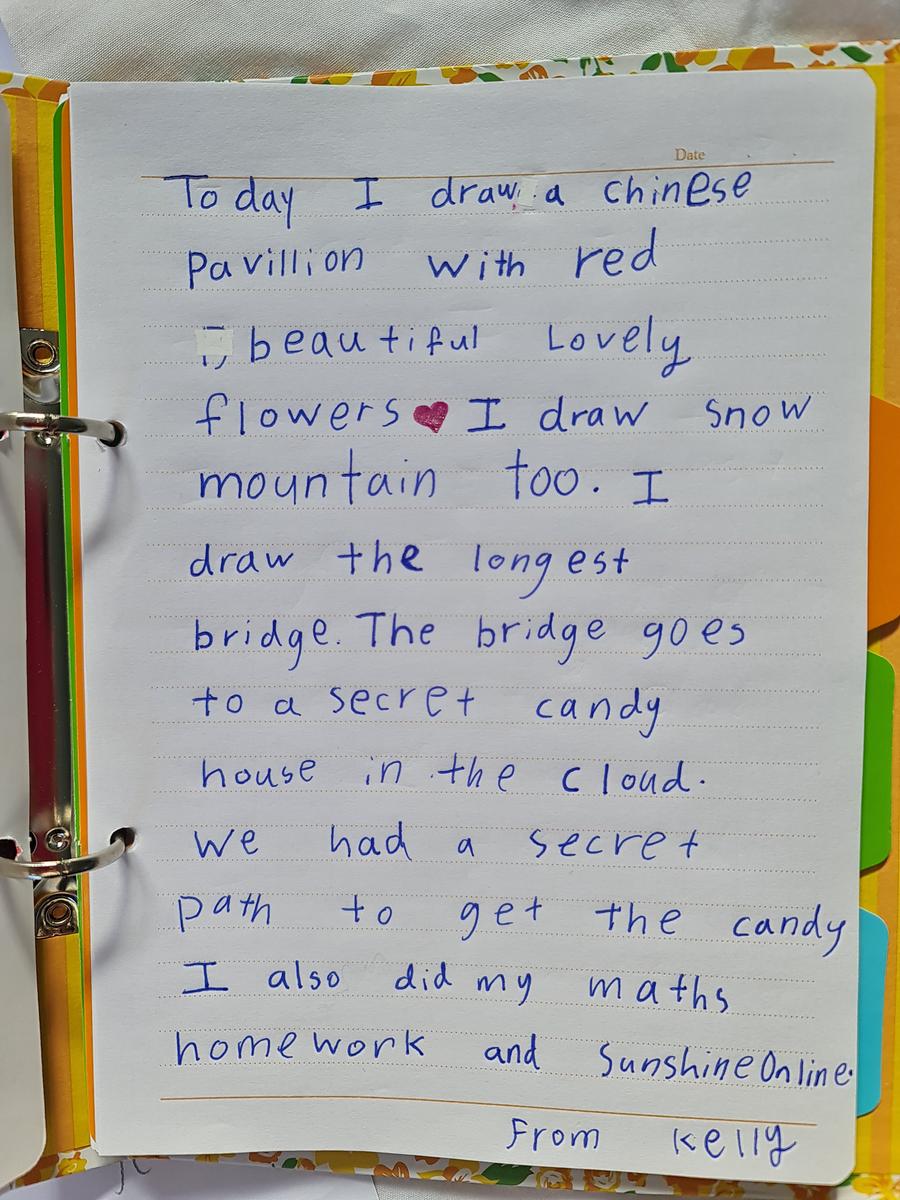 Date
Today I draw a chinese
pavillion with red
beautiful Lovely
flowers I draw snow
mountain too. I
draw the longest
bridge. The bridge goes
to a secret candy
house in the cloud.
We had a secret
path to get the candy
I also did my maths
homework and SunshineOnline.
From Kelly